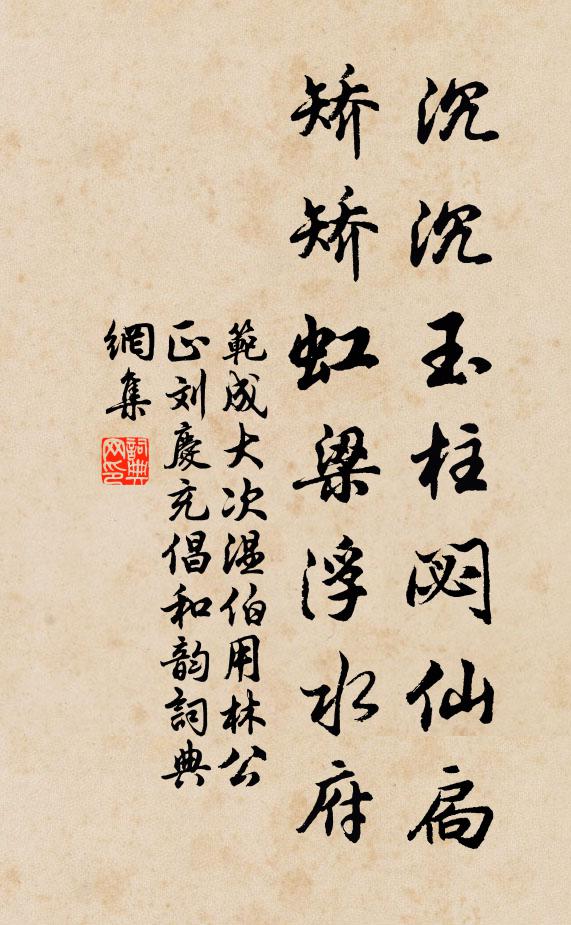 沉沉玉柱閟仙扃
矯矯虹梁浮水府
範成大次溫伯用林公
正刘慶充倡和韵詞典
網集
詞典
网印